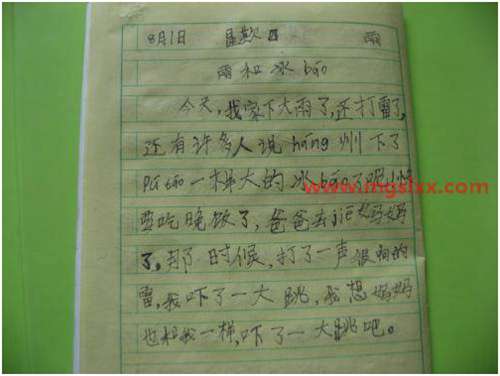 8月1日 星期四 雨
雨和冰báo
今天,我家下大雨了,还打雷了,
还有许多人说háng州下了
pú táo一样大的冰báo了呢,快
要吃晚饭了,爸爸去jiē妈妈
了,那时候,打了一声很响的
雷,我吓了一大跳,我想妈妈
也和我一样,吓了一大跳吧。
www.mgslxx.com